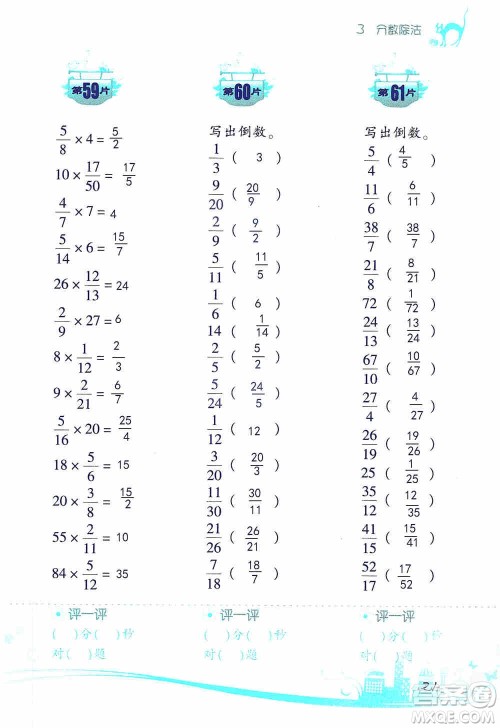 3 分数除法
第59片
5/8 × 4 = 5/2
10 × 17/50 = 17/5
4/7 × 7 = 4
5/14 × 6 = 15/7
26 × 12/13 = 24
2/9 × 27 = 6
8 × 1/12 = 2/3
9 × 2/21 = 6/7
5/16 × 20 = 25/4
18 × 5/6 = 15
20 × 3/8 = 15/2
55 × 2/11 = 10
84 × 5/12 = 35
评一评
( )分( )秒
对( )题
第60片
写出倒数。
1/3 ( 3 )
9/20 ( 20/9 )
2/9 ( 9/2 )
5/11 ( 11/5 )
1/6 ( 6 )
14 ( 1/14 )
2/5 ( 5/2 )
5/24 ( 24/5 )
1/12 ( 12 )
3/20 ( 20/3 )
11/30 ( 30/11 )
21/26 ( 26/21 )
7/18 ( 18/7 )
评一评
( )分( )秒
对( )题
第61片
写出倒数。
5/4 ( 4/5 )
11/6 ( 6/11 )
38/7 ( 38/7 )
21/8 ( 8/21 )
72 ( 1/72 )
24/13 ( 13/24 )
67/10 ( 10/67 )
27/4 ( 4/27 )
26/19 ( 19/26 )
35/12 ( 12/35 )
41/15 ( 15/41 )
52/17 ( 17/52 )
评一评
( )分( )秒
对( )题
21
答案圈
MXQE.COM